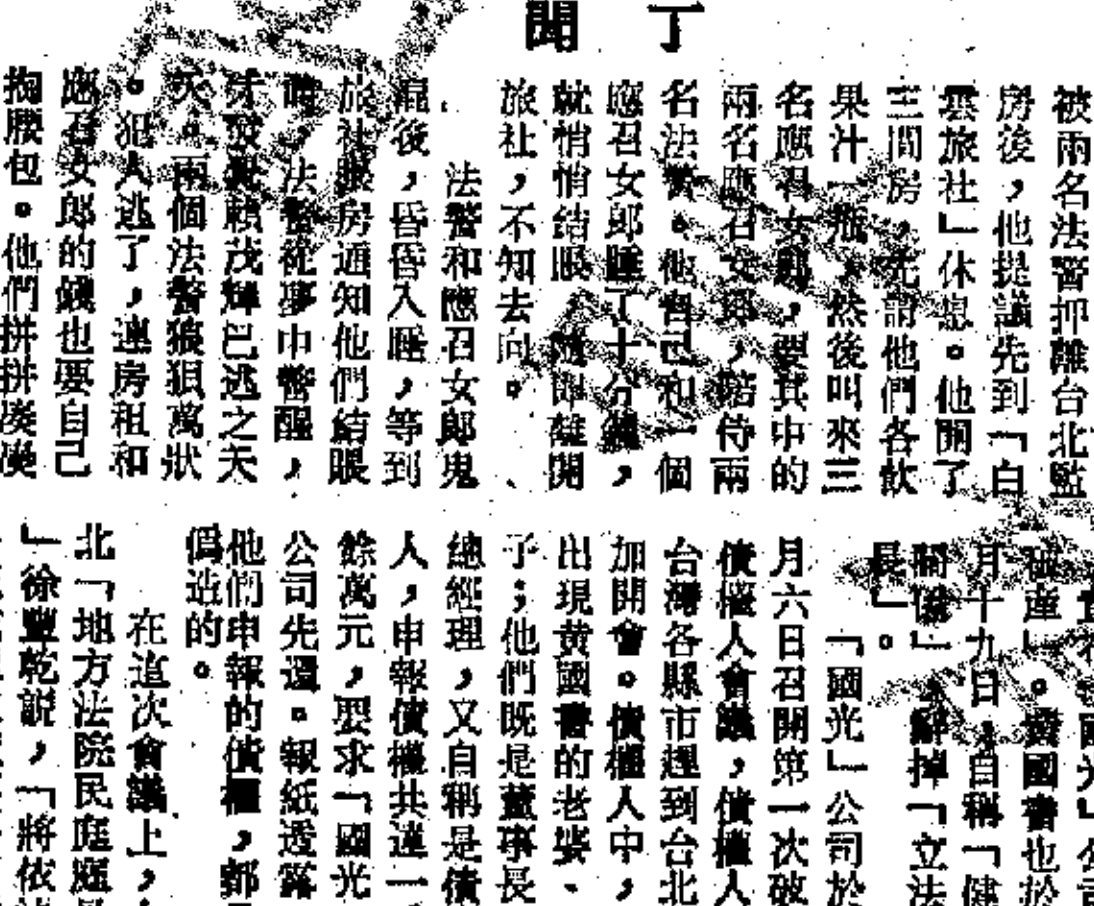 丁聞
被兩名法警押離台北監
房後，他提議先到「白
雲旅社」休息。他開了
三間房，先請他們各飲
果汁一瓶，然後叫來三
名應召女郎，要其中的
兩名應召女郎，陪侍兩
名法警。他自己和一個
應召女郎睡了十分鐘，
就悄悄結賬，隨即離開
旅社，不知去向。
法警和應召女郎鬼
混後，昏昏入睡，等到
旅社賬房通知他們結賬
時，法警從夢中警醒，
才發覺賴茂輝已逃之夭
夭。兩個法警狼狽萬狀
。犯人逃了，連房租和
應召女郎的錢也要自己
掏腰包。他們拼拼湊湊
國光」公司
破產」。黃國書也於
月十九日，自稱「健
關係」，辭掉「立法
長」。
「國光」公司於
月六日召開第一次破
債權人會議，債權人
台灣各縣市趕到台北
加開會。債權人中，
出現黃國書的老婆、
子；他們既是董事長
總經理，又自稱是債
人，申報債權共達一
餘萬元，要求「國光
公司先還。報紙透露
他們申報的債權，都
偽造的。
在這次會議上，
北「地方法院民庭庭
」徐豐乾説，「將依